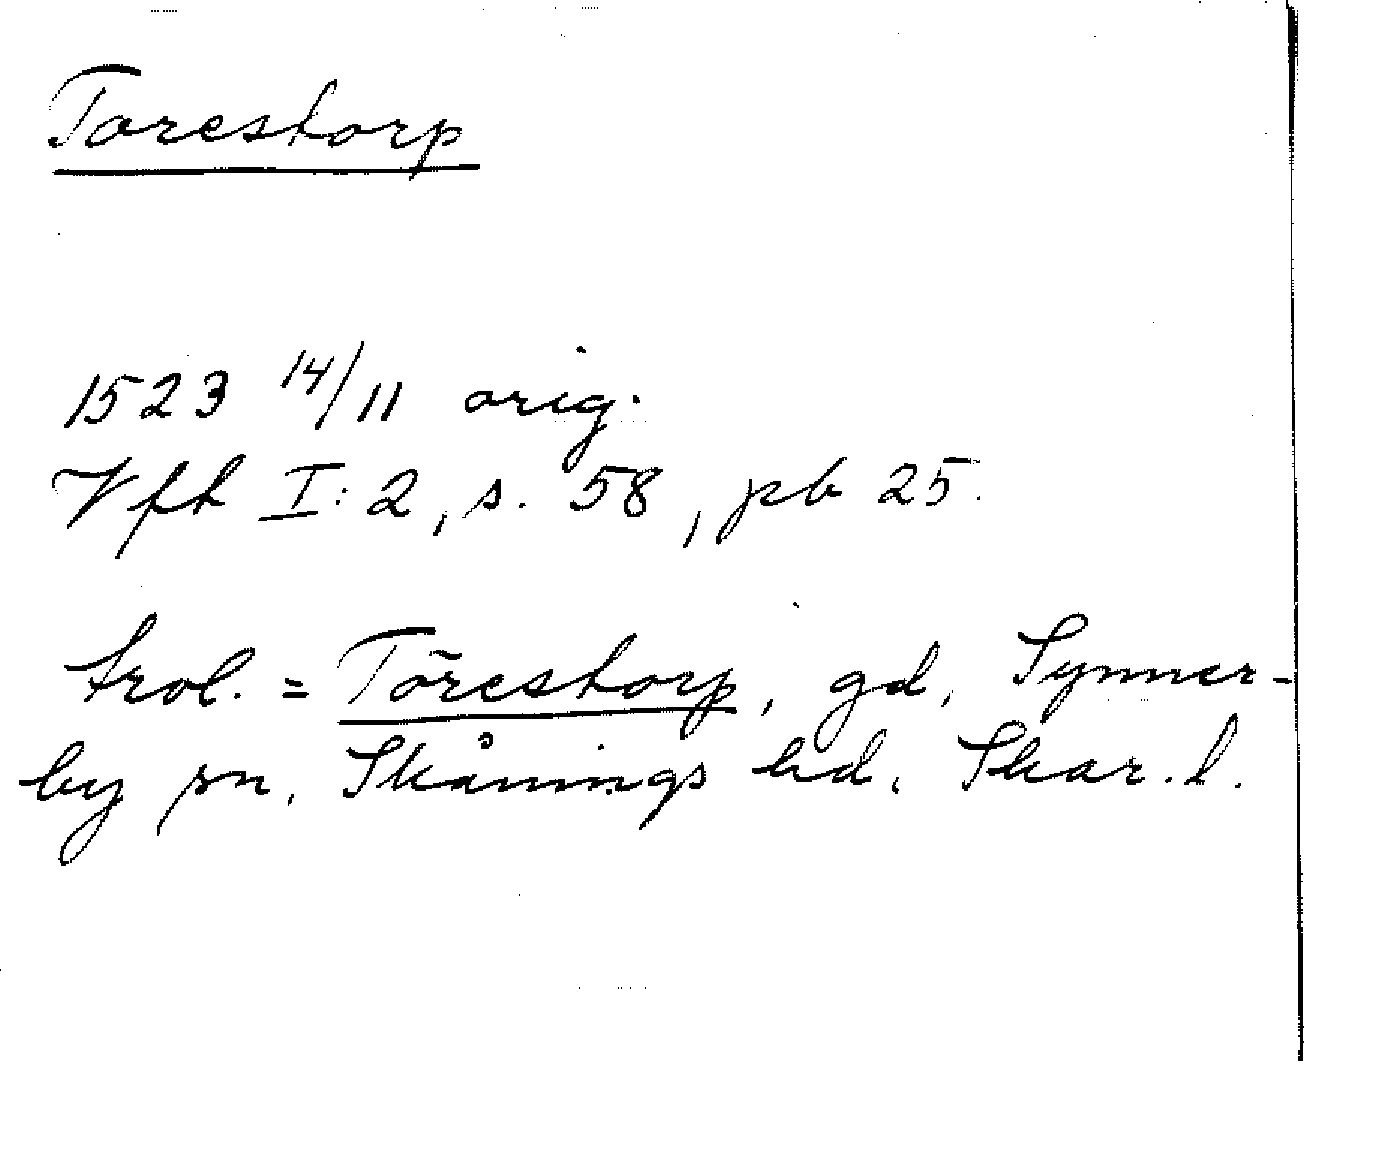 Torestorp
1523 14/11 orig.
Vft I:2, s. 58, pb 25.
Trol. = Törestorp, gd, Synner-
by sn, Skånings hd, Skar. l.